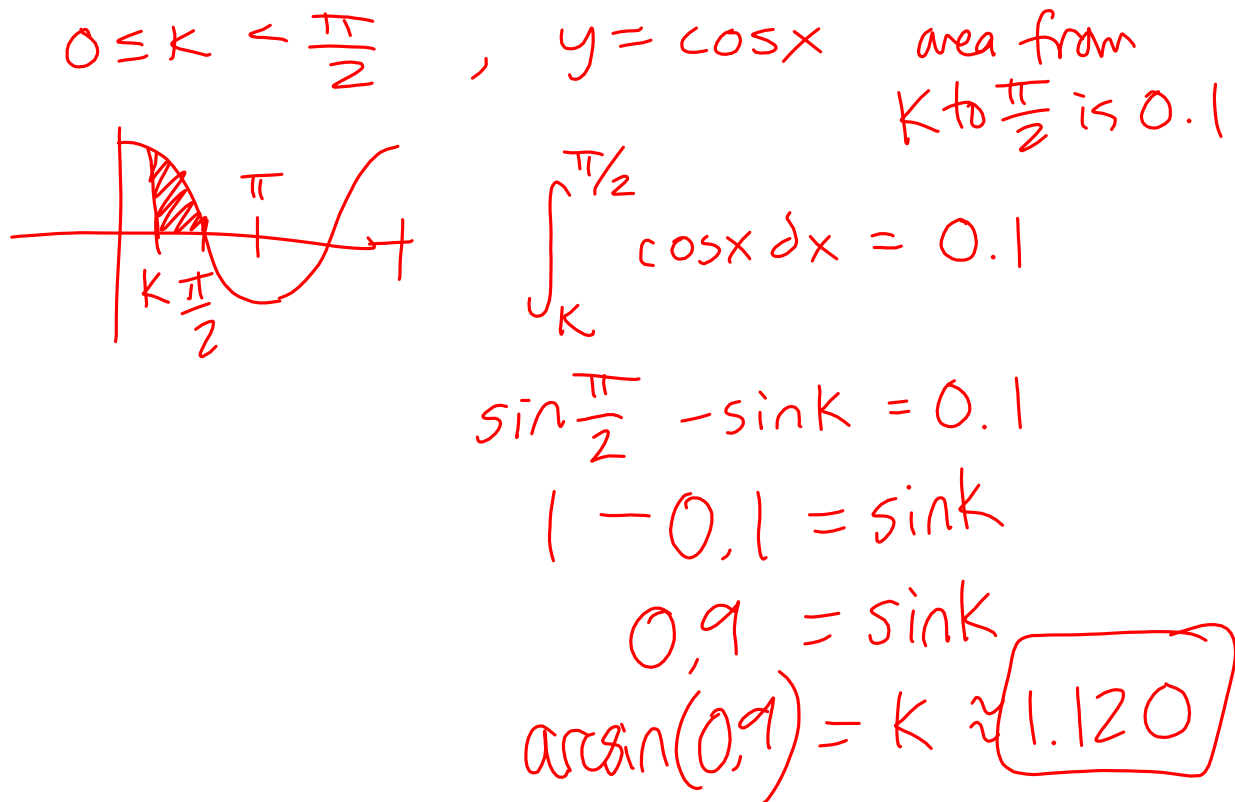 0 ≤ K < π/2 , y = cosx area from
K to π/2 is 0.1
π
K π/2
∫_K^π/2 cosx dx = 0.1
sin π/2 - sink = 0.1
1 - 0.1 = sink
0.9 = sink
arcsin(0.9) = K ≈ 1.120